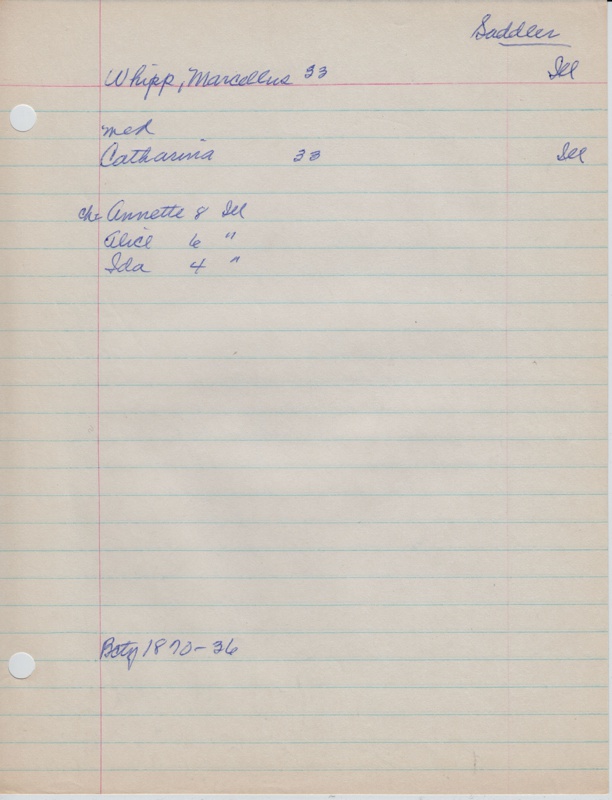 Saddler
Whipp, Marcellus 33 Ill
med
Catharina 33 Ill
ch- Annette 8 Ill
Alice 6 "
Ida 4 "
Bcty 1870-36